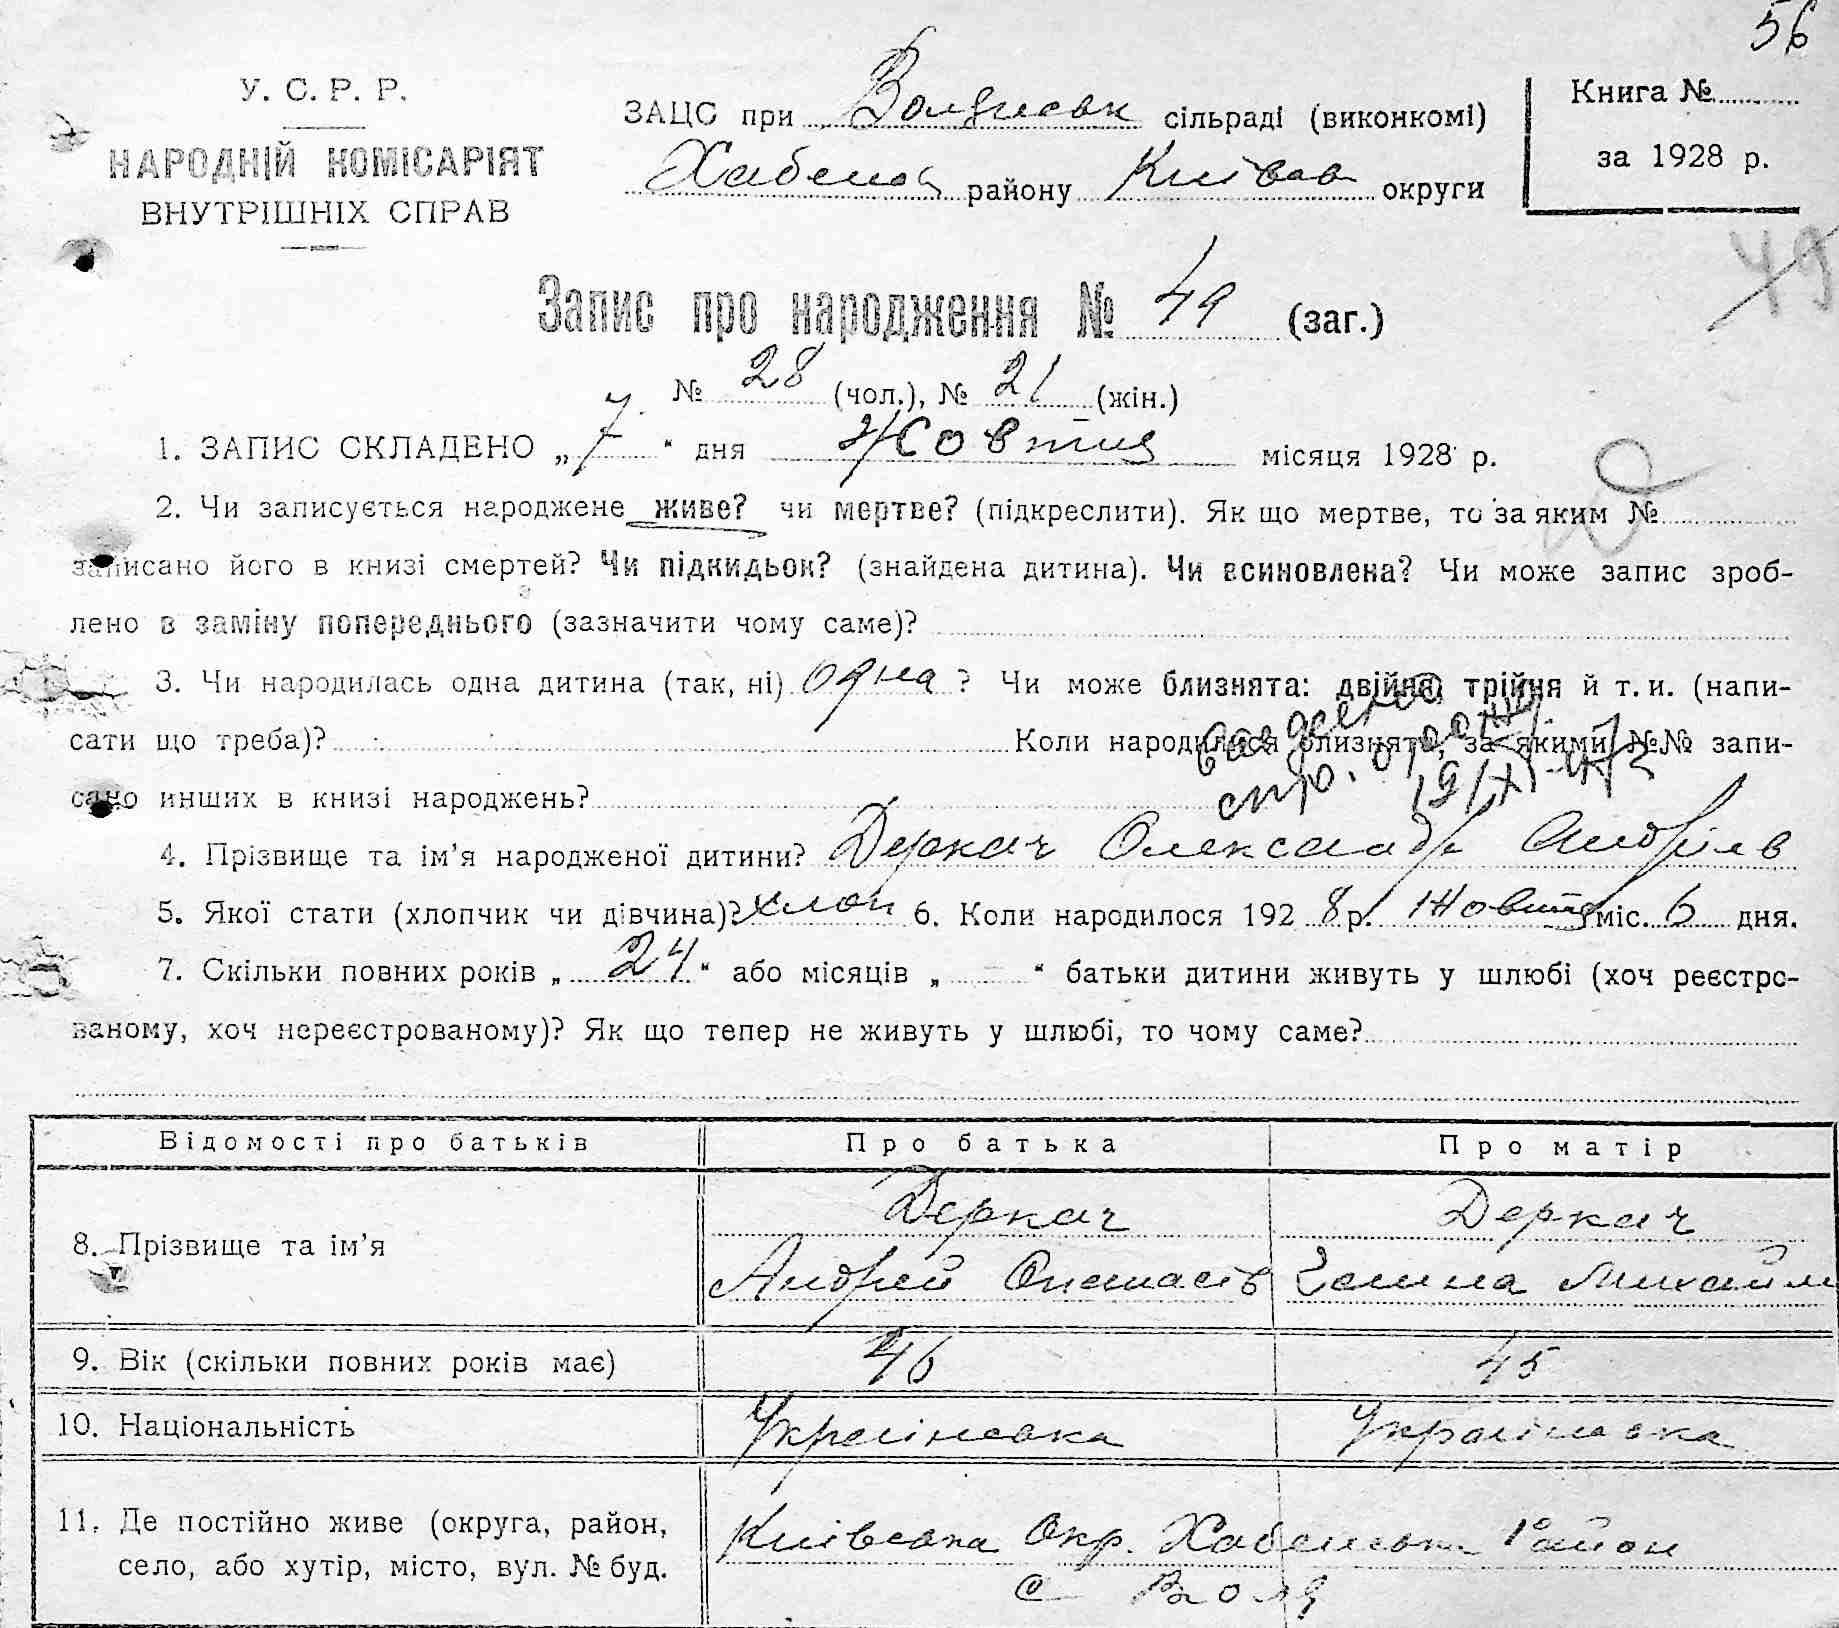 56
У. С. Р. Р.
НАРОДНІЙ КОМІСАРІЯТ
ВНУТРІШНІХ СПРАВ
ЗАЦС при сільраді (виконкомі)
району Київсь округи
Книга №
за 1928 р.
49
Запис про народження № 49 (заг.)
№ 28 (чол.), № 21 (жін.)
1. ЗАПИС СКЛАДЕНО „ 7 “ дня Жовтня місяця 1928 р.
2. Чи записується народжене живе? чи мертве? (підкреслити). Як що мертве, то за яким №
записано його в книзі смертей? Чи підкидьок? (знайдена дитина). Чи всиновлена? Чи може запис зроб-
лено в заміну попереднього (зазначити чому саме)?
3. Чи народилась одна дитина (так, ні) одна ? Чи може близнята: двійня, трійня й т. и. (напи-
сати що треба)? Коли народилися близнята, за якими №№ запи-
сано инших в книзі народжень?
4. Прізвище та ім’я народженої дитини? Деркач Олександр Андріїв
5. Якої стати (хлопчик чи дівчина)? хлоп 6. Коли народилося 192 8 р. Жовтня міс. 6 дня.
7. Скільки повних років „ 24 “ або місяців „ “ батьки дитини живуть у шлюбі (хоч реєстро-
ваному, хоч нереєстрованому)? Як що тепер не живуть у шлюбі, то чому саме?
Відомості про батьків Про батька Про матір
8. Прізвище та ім’я Деркач Деркач
Андрей Михайл
9. Вік (скільки повних років має) 46 45
10. Національність Українська Українська
11. Де постійно живе (округа, район,
село, або хутір, місто, вул. № буд.
Київська Окр. Хабенськ Район
с Воля